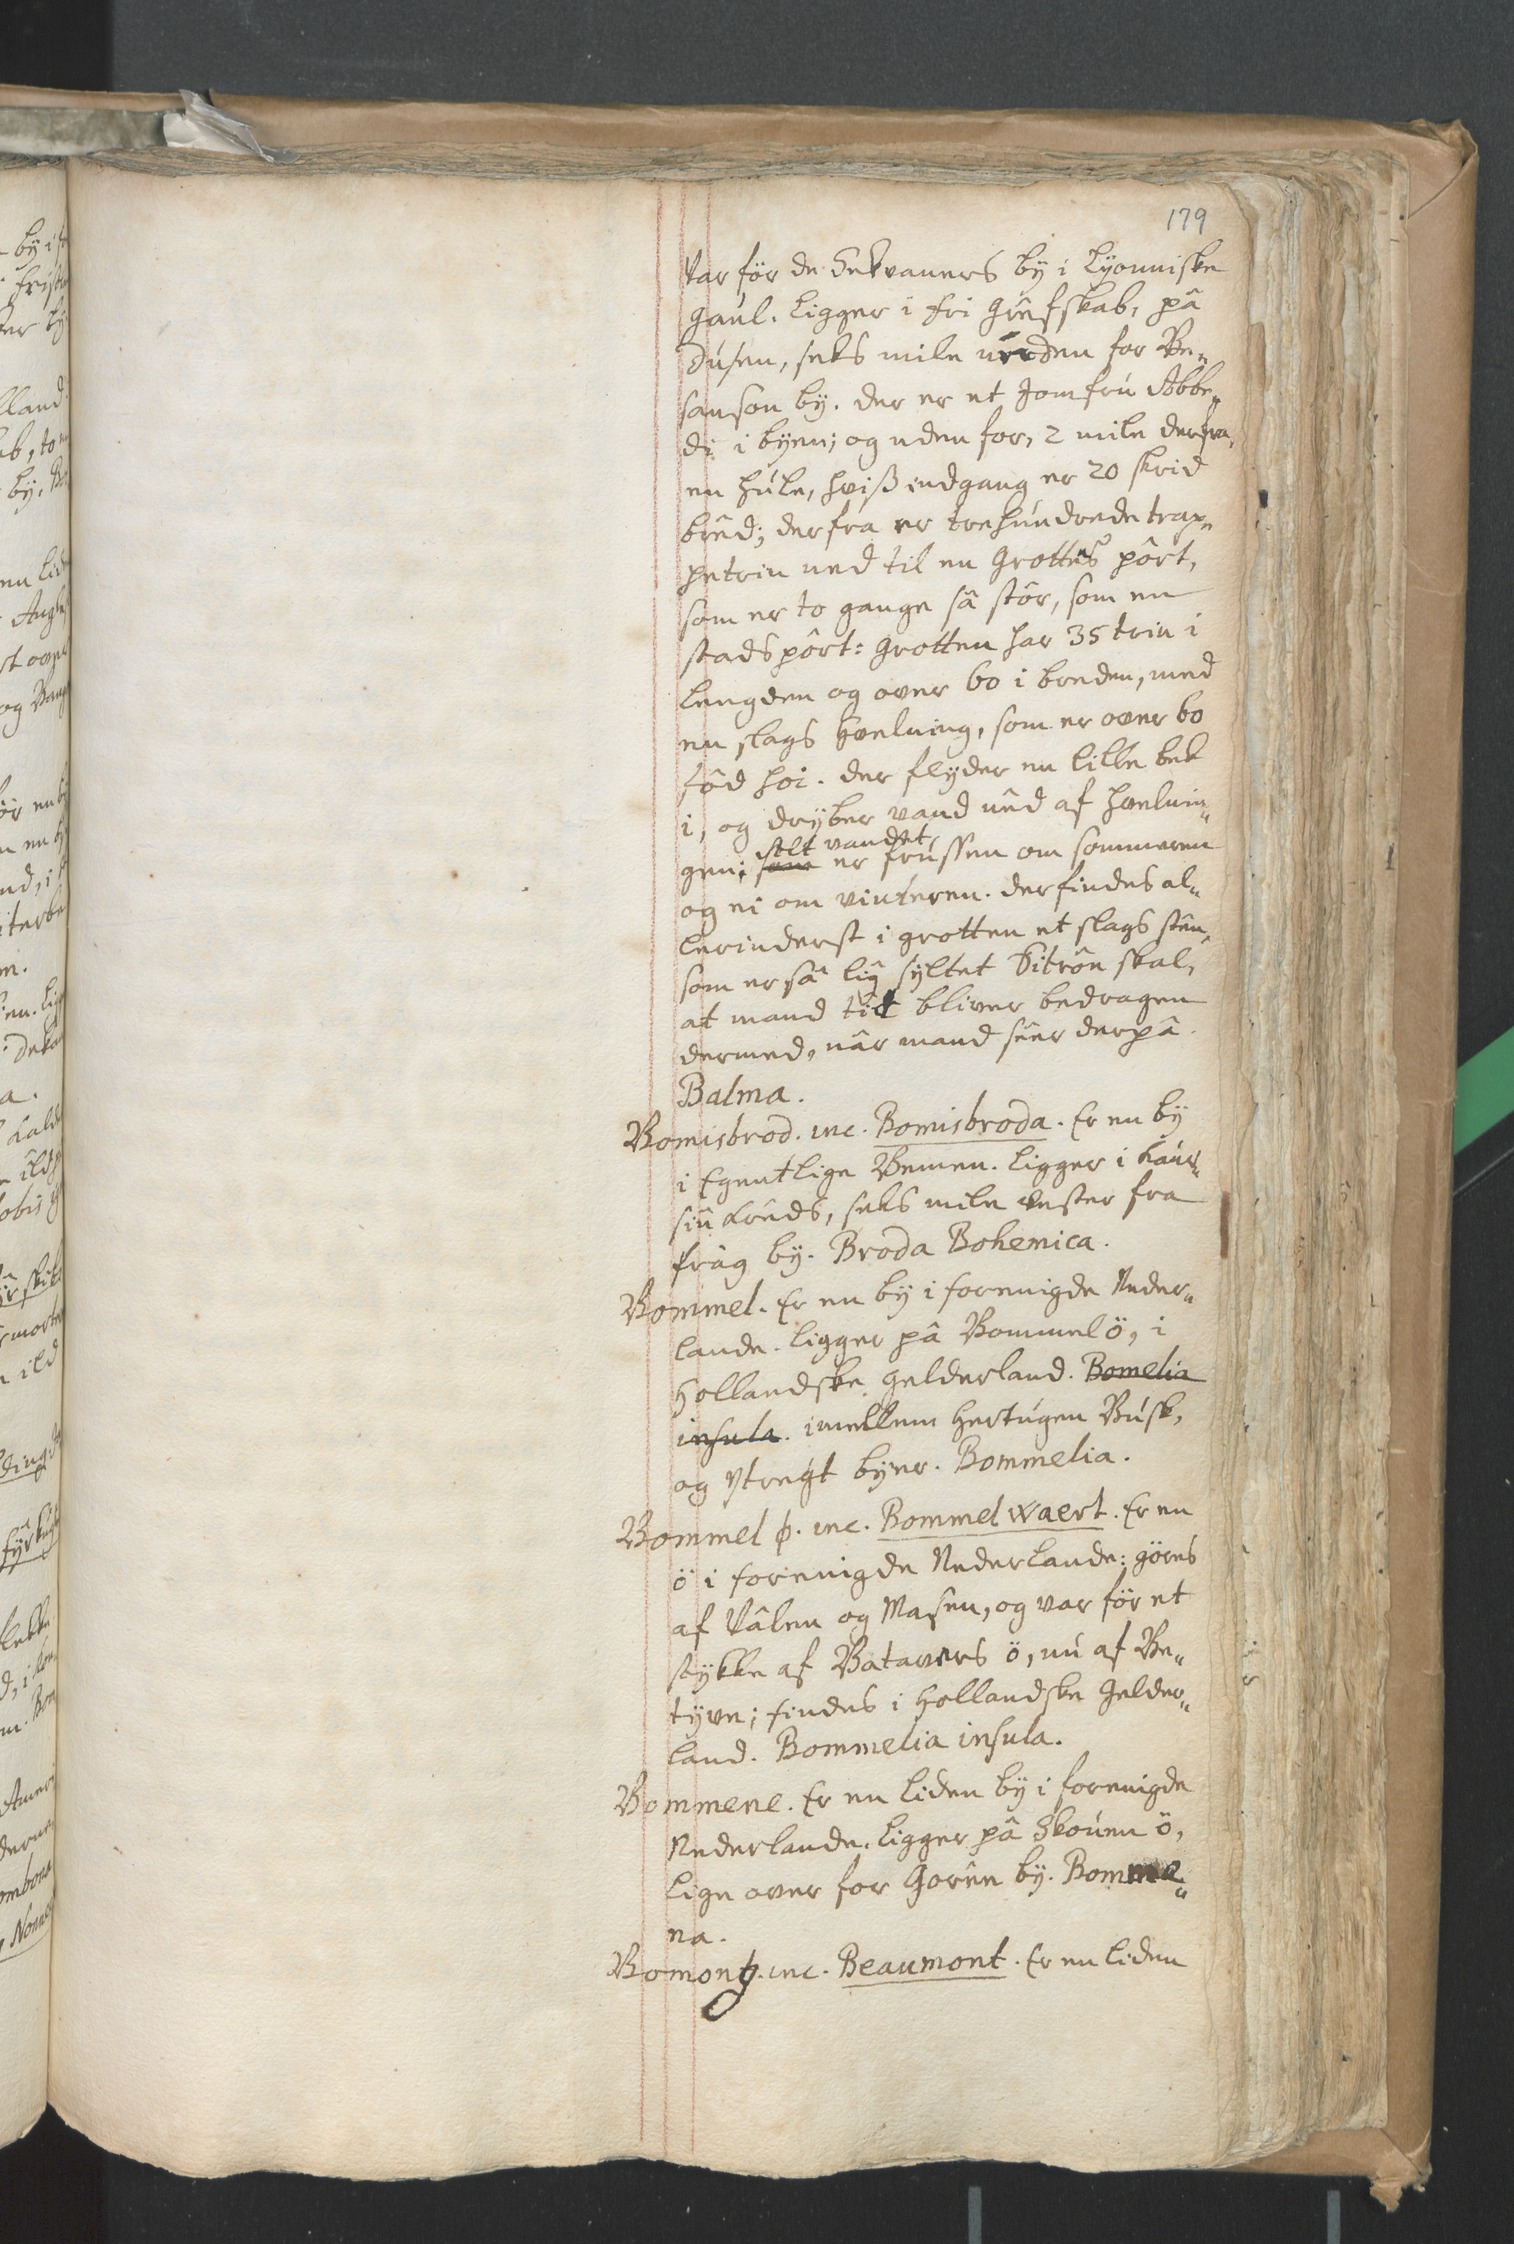 179
Var för de Sekvaners bÿ i Lÿonniske
Gaúl. Ligger i fri Grêfskab, pâ
Dúsen, seks mile nörden for Be„
sanson bÿ. der er et Jomfrú Abbe„
di i bÿen; og uden for, 2 mile derfra,
en húle, hviß indgang er 20 skrid
brêd; derfra er trehúndrede trap„
petrin ned til en Grottes pôrt,
som er to gange sâ stôr, som en
stads pôrt: Grotten har 35 trin i
Lengden og over 60 i breden, med
en slags hvelning, som er over 60
fôd hoi. der flÿder en lille bek
i, og drÿber vand nêd af hvelnin„
gen; selt vandet, er frússen om sommeren
og ei om vinteren. der findes al„
lerinderst i grotten et slags stên,
som er sâ lig sÿltet Sitrôn skal,
at mand tit bliver bedragen
dermed, nâr mand sêer derpâ.
Balma.
Bomisbrod. inc. Bomisbroda. Er en bÿ
i Egentlige Bemen. Ligger i Kaúr„
siû Krêds, seks mile vester fra
Prâg bÿ. Broda Bohemica.
Bommel. Er en bÿ i forenigde Neder„
lande. Ligger pâ Bommel ö, i
Hollandske Gelderland. Bomelia
insula. imellem Hertúgen Búsk,
og Ytregt bÿer. Bommelia.
Bommel ø. inc. Bommel waert. Er en
ö i forenigde Nederlande: göres
af Vâlen og Masen, og var för et
stÿkke af Batavers ö, nú af Be„
tÿve; findes i Hollandske Gelder„
land. Bommelia insula.
Bommene. Er en liden bÿ i forenigde
Nederlande. Ligger pâ Skoúen ö,
lige over for Gorêe bÿ. Bomme„
na.
Bomong. inc. Beaumont. Er en liden